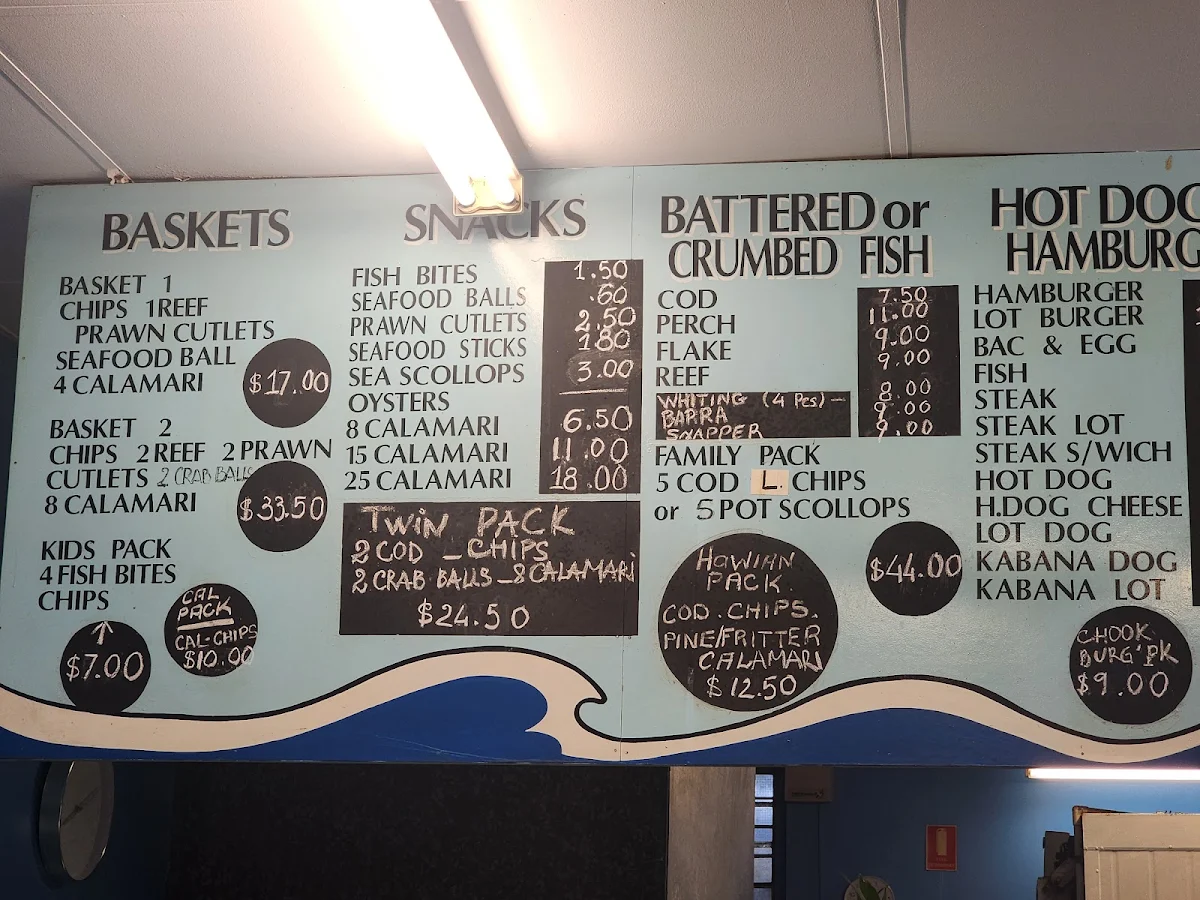 BASKETS
BASKET 1
CHIPS 1REEF
PRAWN CUTLETS
SEAFOOD BALL
4 CALAMARI
$17.00
BASKET 2
CHIPS 2 REEF 2 PRAWN
CUTLETS 2 CRAB BALLS
8 CALAMARI
$33.50
KIDS PACK
4 FISH BITES
CHIPS
$7.00
CAL
PACK
CAL-CHIPS
$10.00
SNACKS
FISH BITES 1.50
SEAFOOD BALLS .60
PRAWN CUTLETS 2.50
SEAFOOD STICKS 1.80
SEA SCOLLOPS 3.00
OYSTERS
8 CALAMARI 6.50
15 CALAMARI 11.00
25 CALAMARI 18.00
TWIN PACK
2 COD _ CHIPS
2 CRAB BALLS _ 8 CALAMARI
$24.50
BATTERED or
CRUMBED FISH
COD 7.50
PERCH 11.00
FLAKE 9.00
REEF 9.00
WHITING (4 Pcs) - 8.00
BARRA 9.00
SNAPPER 9.00
FAMILY PACK
5 COD L. CHIPS
or 5 POT SCOLLOPS
$44.00
HAWIAN
PACK
COD. CHIPS.
PINE/FRITTER
CALAMARI
$12.50
HOT DOG
HAMBURG
HAMBURGER
LOT BURGER
BAC & EGG
FISH
STEAK
STEAK LOT
STEAK S/WICH
HOT DOG
H.DOG CHEESE
LOT DOG
KABANA DOG
KABANA LOT
CHOOK
BURG'PK
$9.00